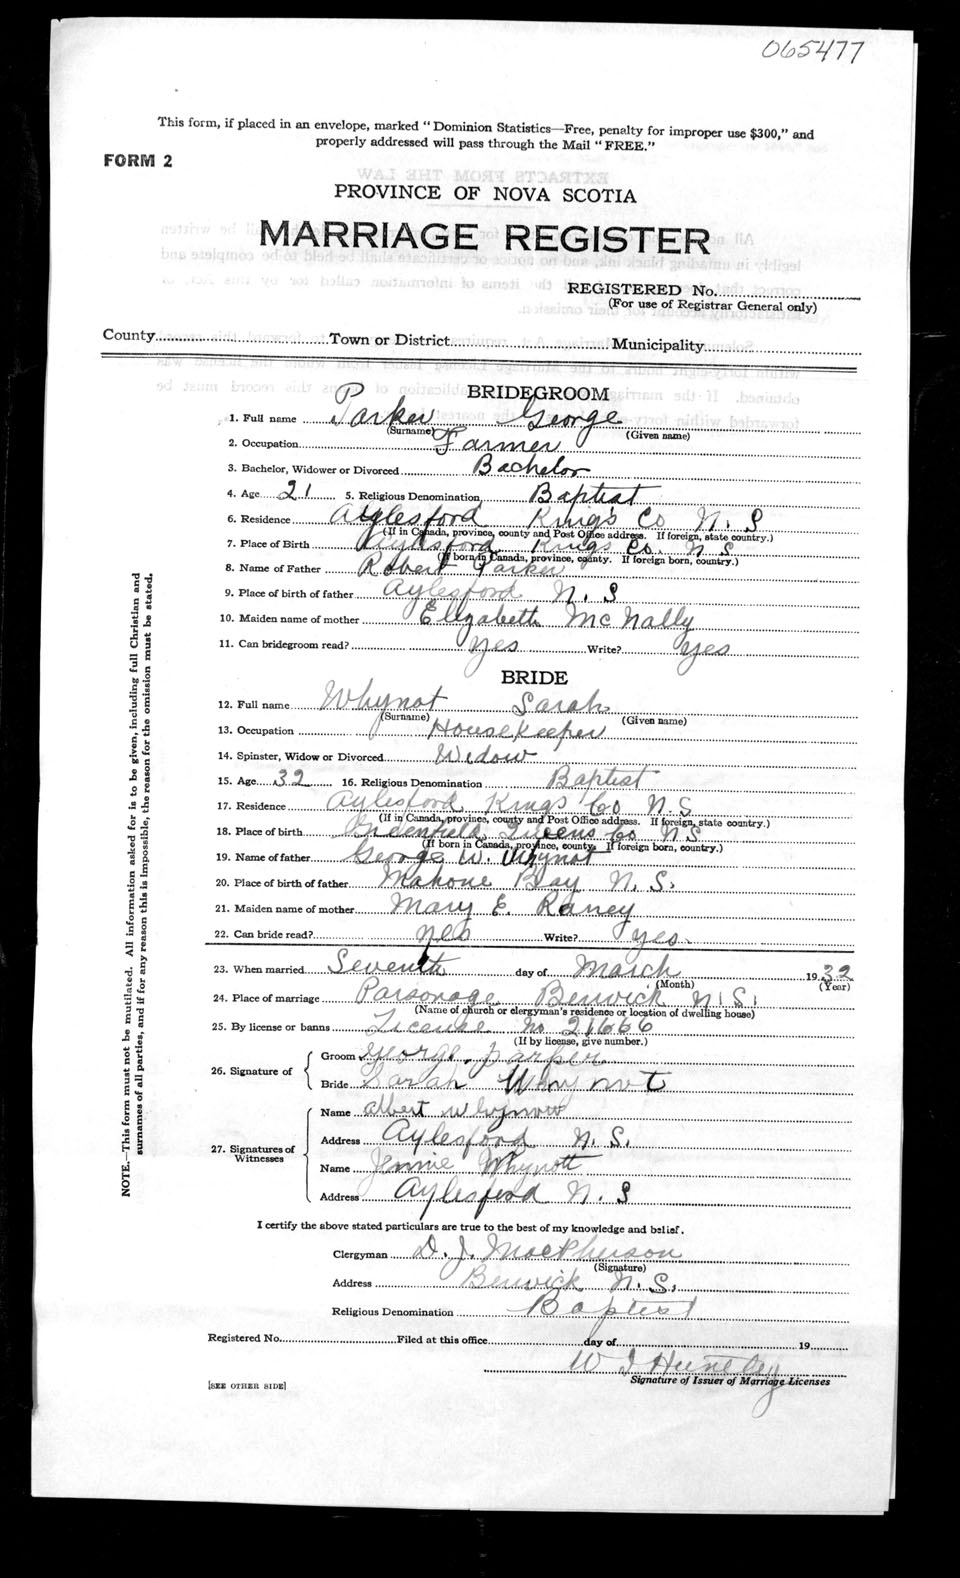 065477
This form, if placed in an envelope, marked "Dominion Statistics—Free, penalty for improper use $300," and
properly addressed will pass through the Mail "FREE."
FORM 2
PROVINCE OF NOVA SCOTIA
MARRIAGE REGISTER
REGISTERED No.
(For use of Registrar General only)
County Town or District Municipality
BRIDEGROOM
1. Full name Parker George
(Surname) (Given name)
2. Occupation Farmer
3. Bachelor, Widower or Divorced Bachelor
4. Age 21 5. Religious Denomination Baptist
6. Residence Aylesford King's Co N. S
(If in Canada, province, county and Post Office address. If foreign, state country.)
7. Place of Birth Aylesford King's Co. N S
(If born in Canada, province, county. If foreign born, country.)
8. Name of Father Robert Parker
9. Place of birth of father Aylesford N. S
10. Maiden name of mother Elizabeth McNally
11. Can bridegroom read? Yes Write? yes
BRIDE
12. Full name Whynot Sarah
(Surname) (Given name)
13. Occupation Housekeeper
14. Spinster, Widow or Divorced Widow
15. Age 32 16. Religious Denomination Baptist
17. Residence Aylesford Kings Co N. S
(If in Canada, province, county and Post Office address. If foreign, state country.)
18. Place of birth Greenfield Queens Co N S
(If born in Canada, province, county. If foreign born, country.)
19. Name of father George W. Whynot
20. Place of birth of father Mahone Bay N. S.
21. Maiden name of mother Mary E. Raney
22. Can bride read? yes Write? yes
23. When married Seventh day of March 1932
(Month) (Year)
24. Place of marriage Parsonage Berwick N. S.
(Name of church or clergyman's residence or location of dwelling house)
25. By license or banns License no 21666
(If by license, give number.)
26. Signature of Groom George Parker
Bride Sarah Whynot
27. Signatures of Witnesses Name Albert
Address Aylesford N. S.
Name Jennie Whynott
Address Aylesford N. S
I certify the above stated particulars are true to the best of my knowledge and belief.
Clergyman D. J. MacPherson
(Signature)
Address Berwick N. S.
Religious Denomination Baptist
Registered No. Filed at this office day of 19
W I Huntley
Signature of Issuer of Marriage Licenses
[SEE OTHER SIDE]
NOTE.—This form must not be mutilated. All information asked for is to be given, including full Christian and
surnames of all parties, and if for any reason this is impossible, the reason for the omission must be stated.